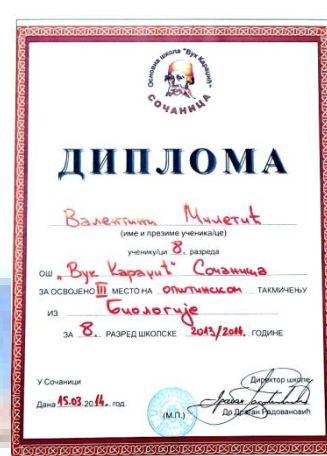 Основна школа "Вук Караџић"
СОЧАНИЦА
ДИПЛОМА
Валентини Милетић
(име и презиме ученика/це)
ученику/ци 8. разреда
ОШ „Вук Караџић" Сочаница
ЗА ОСВОЈЕНО III МЕСТО НА општинском ТАКМИЧЕЊУ
ИЗ Биологије
ЗА 8. РАЗРЕД ШКОЛСКЕ 2013/2014. ГОДИНЕ
У Сочаници
Директор школе
Дана 15.03.2014. год.
(М.П.)
Др Драган Радовановић